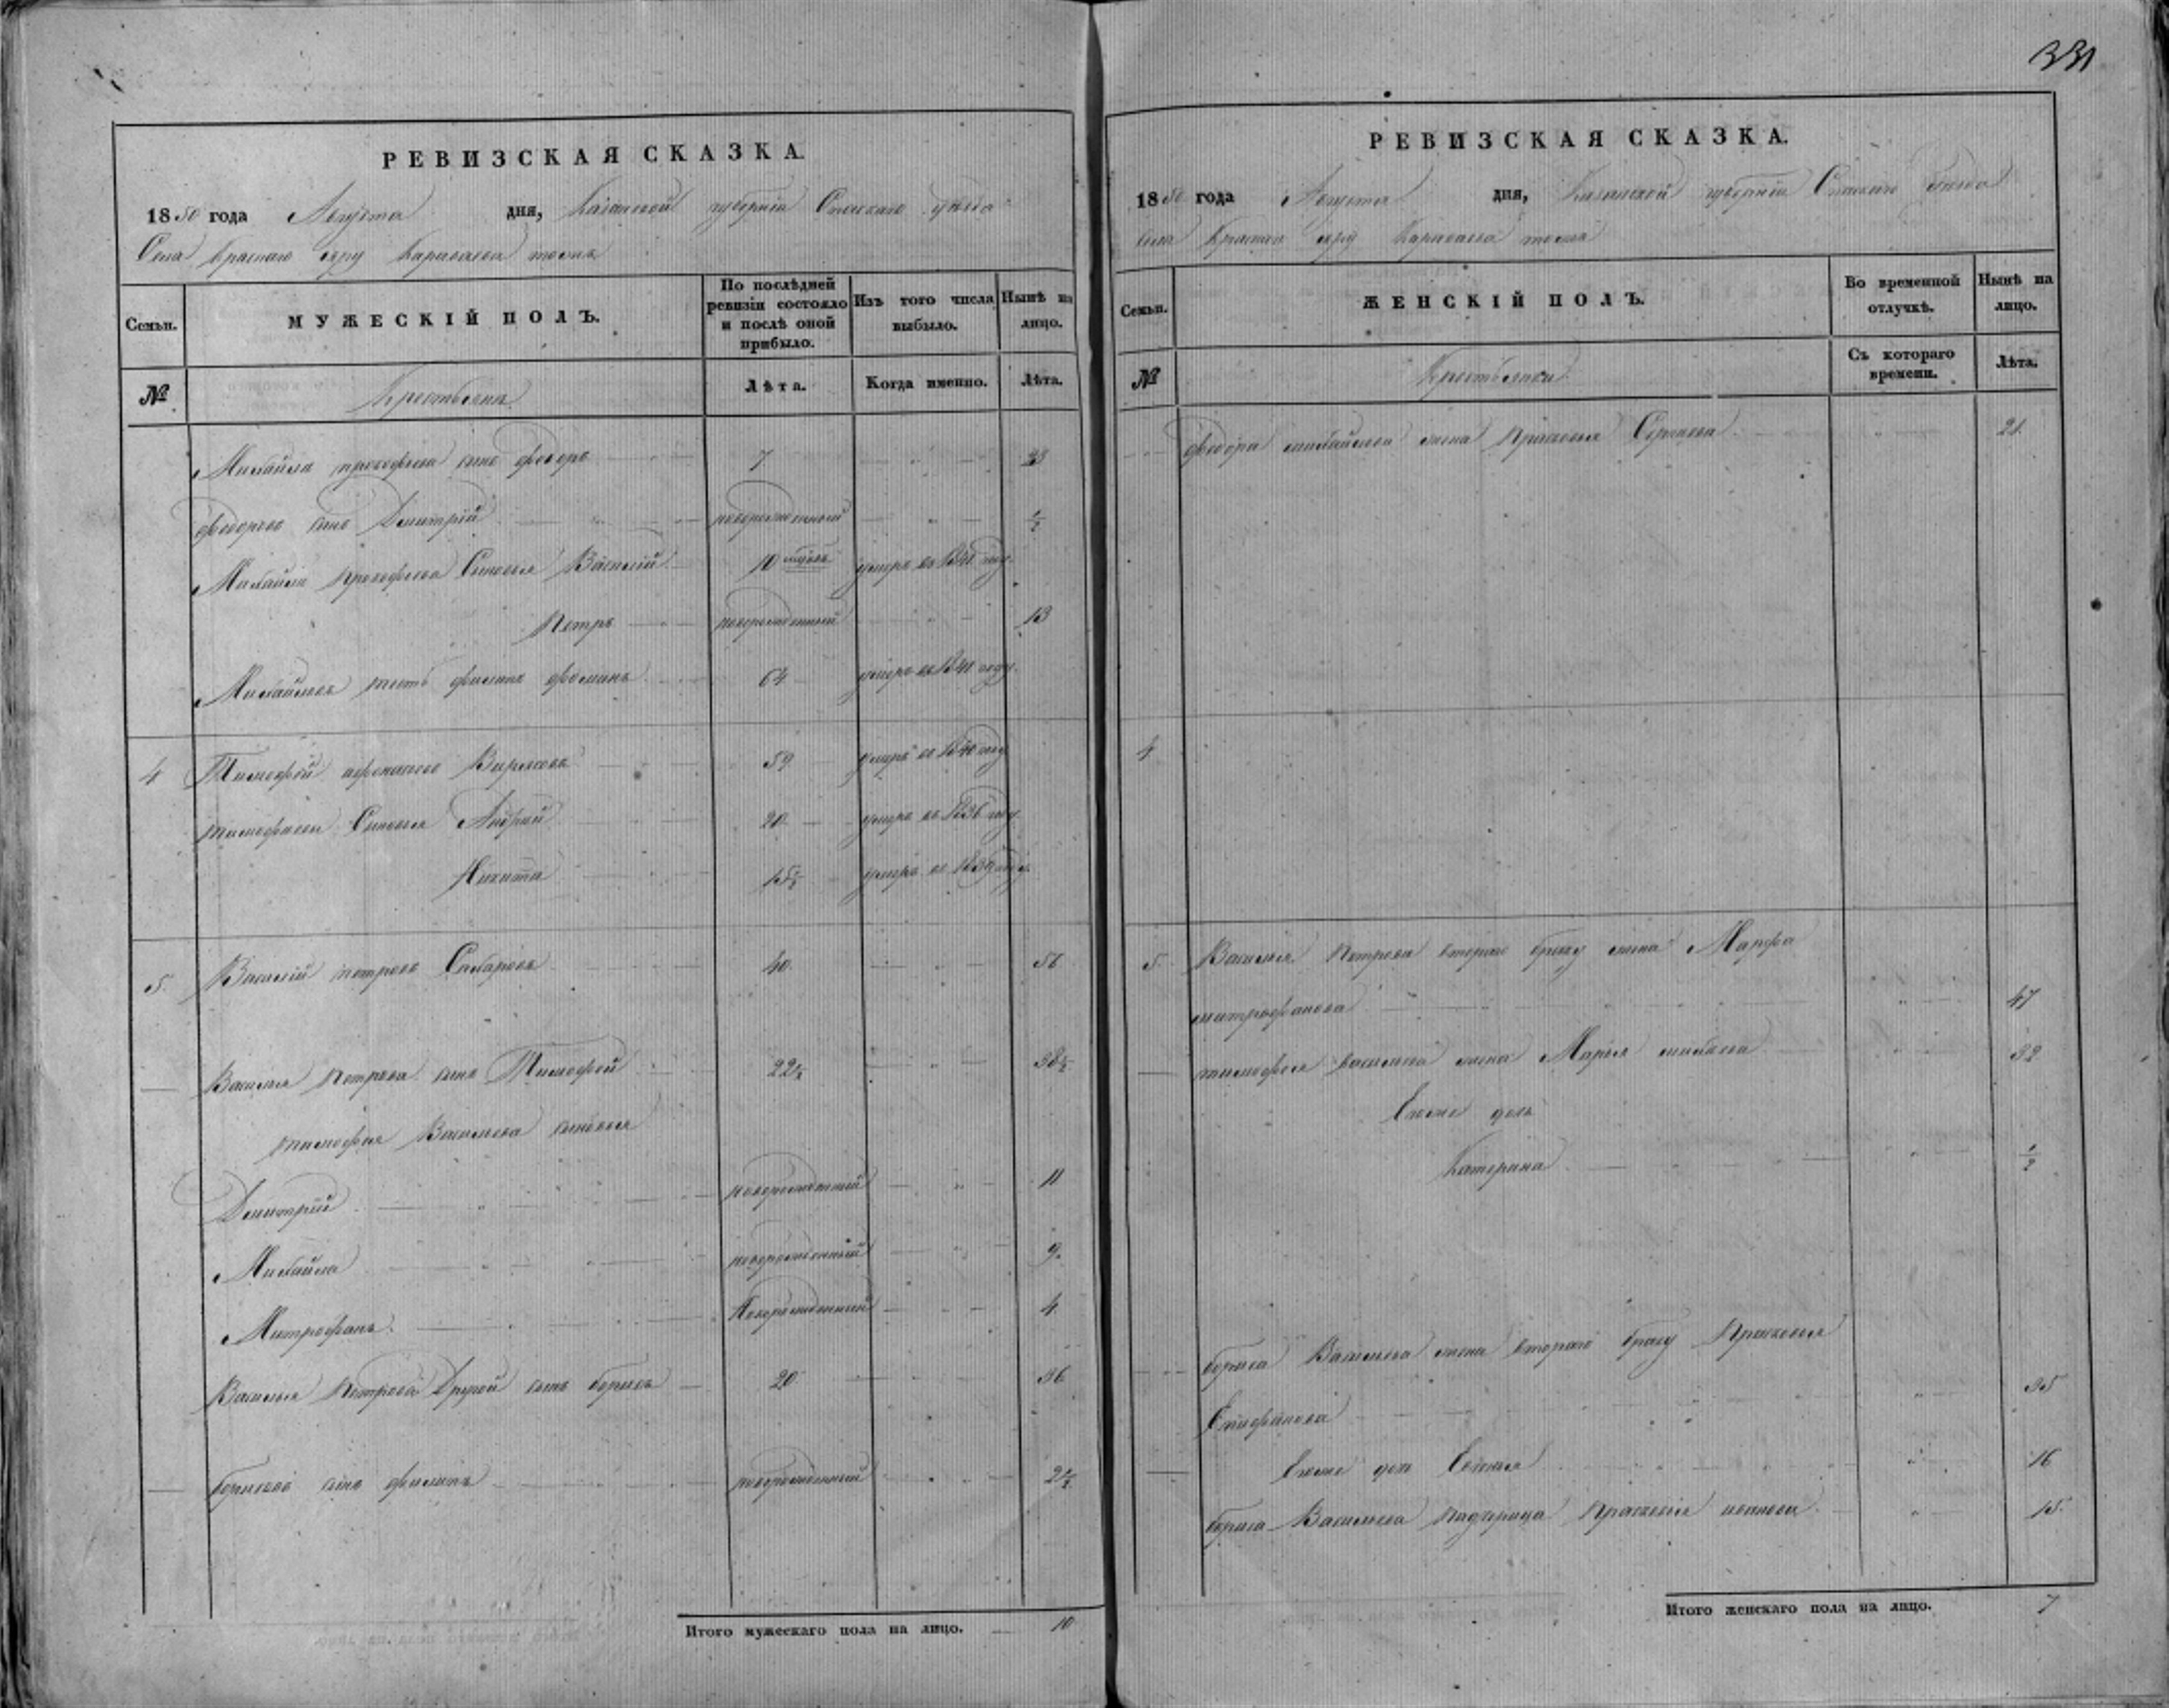 331
РЕВИЗСКАЯ СКАЗКА.
1850 года Августа дня, Казанской губернiи Спаскаго уѣзда
Села Краснаго яру Караваева тожъ
Семьи. МУЖЕСКIЙ ПОЛЪ. По послѣдней ревизiи состояло и послѣ оной прибыло. Изъ того числа выбыло. Нынѣ на лицо.
№ Крестьяне Лѣта. Когда именно. Лѣта.
Михайла прокофьева сынъ федоръ 7 23
федоровъ сынъ Дмитрiй новорожденный 1/2
Михайла Прокофьева Сыновья Василiй 10 умеръ въ 1841 году
Петръ новорожденный 13
Михайловъ тесть филипъ фоминъ 64 умеръ въ 1841 году.
4 Тимофей афонасьевъ 59 умеръ въ 1840 году
тимофеевы Сыновья Андрей 20 умеръ въ 1836 году
Никита 15 1/2 умеръ въ 1839 году
5. Василiй петровъ 40. 56
Василья Петрова сынъ Тимофей 22 1/2 38 1/2
тимофея Васильева сыновья
Дмитрiй новорожденный 11
Михайла новорожденный 9.
Митрофанъ Новорожденный 4
Василья Петрова Другой сынъ борисъ 20 36
борисовъ сынъ филипъ новорожденный 2 1/2
Итого мужескаго пола на лицо. 10
РЕВИЗСКАЯ СКАЗКА.
1850 года Августа дня, Казанской губернiи Спаскаго уѣзда
села Краснаго яру Караваева тожъ
Семьи. ЖЕНСКIЙ ПОЛЪ. Во временной отлучкѣ. Нынѣ на лицо.
№ Крестьянки Съ котораго времени. Лѣта.
федора михайлова жена Прасковья Сергеева 21
4
5. Василья Петрова втораго браку жена Марфа
митрофанова 47
тимофея васильева жена Марья 32
Ево же дочь
Катерина 1/2
бориса Васильева жена втораго браку Прасковья
Епифанова 35
Ево же дочь 16
бориса Васильева падчерица Прасковья иванова 15.
Итого женскаго пола на лицо. 7